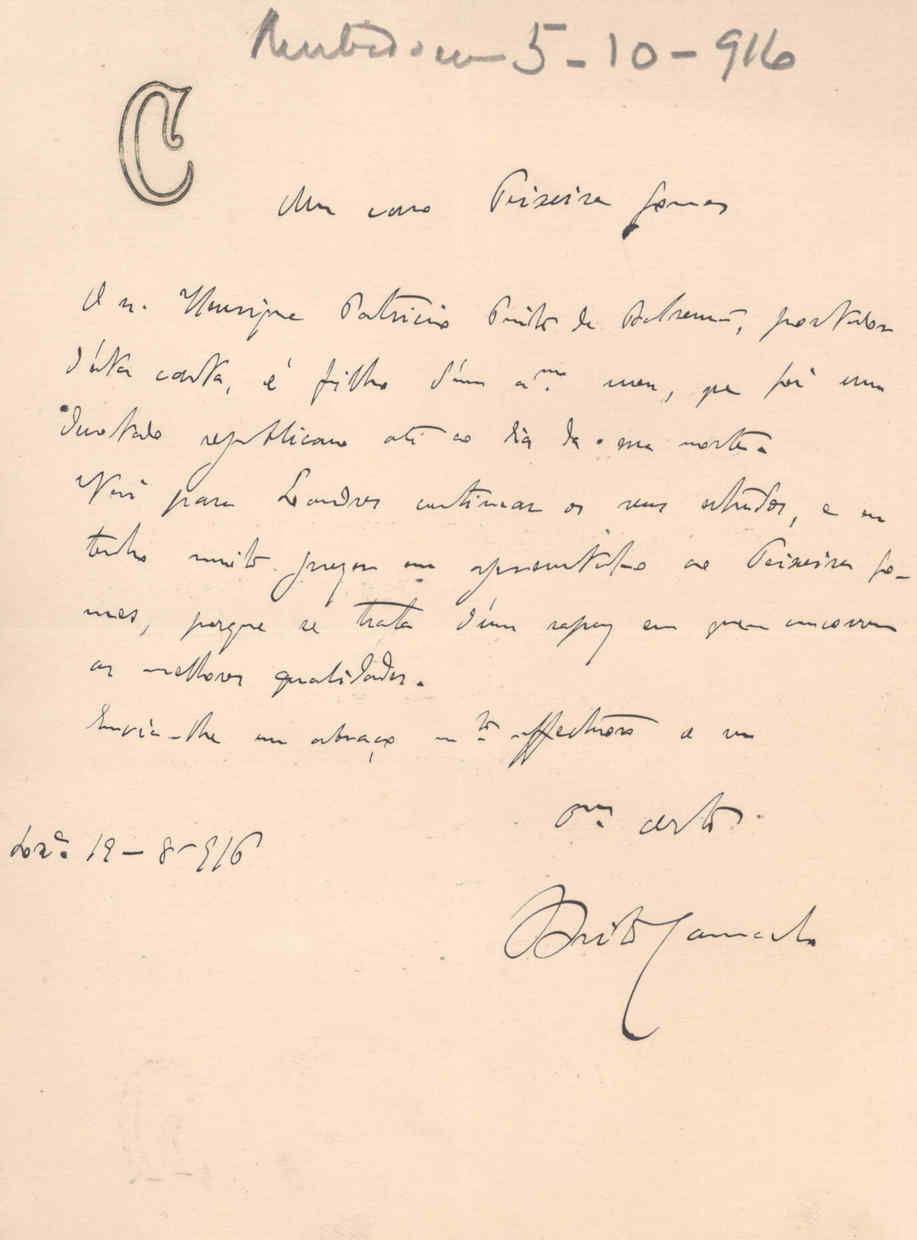 Recebida em 5-10-916
C
Meu caro Teixeira Gomes
O sr. Henrique Patricio Pinto de, portador
d'esta carta, é filho d'um am.º meu, que foi um
devotado republicano até ao dia da sua morte.
Vai para Londres continuar os seus estudos, e eu
tenho muito prazer em apresental-o ao Teixeira Go-
mes, porque se trata d'um rapaz em quem concorrem
as melhores qualidades.
Envia-lhe um abraço m.to affectuoso o seu
am.º certo
Lx.ª 19-8-916
Brito Camacho